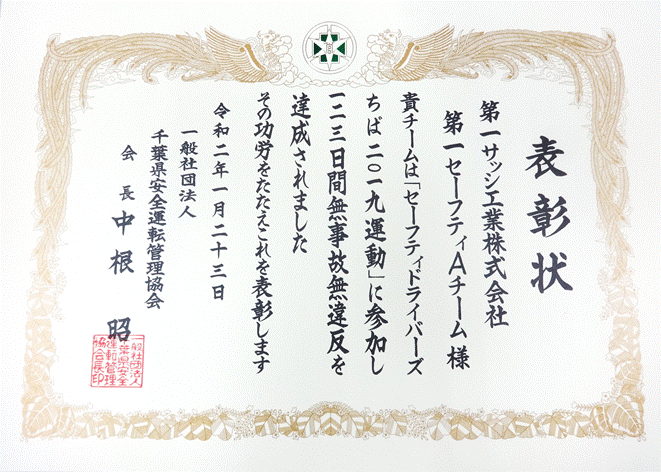 表彰状
第一サッシ工業株式会社
第一セーフティAチーム 様
貴チームは「セーフティドライバーズ
ちば 二〇一九運動」に参加し
一二三日間無事故無違反を
達成されました
その功労をたたえこれを表彰します
令和二年一月二十三日
一般社団法人
千葉県安全運転管理協会
会長 中根 昭
一般社団法人
千葉県安全
運転管理
協会長印